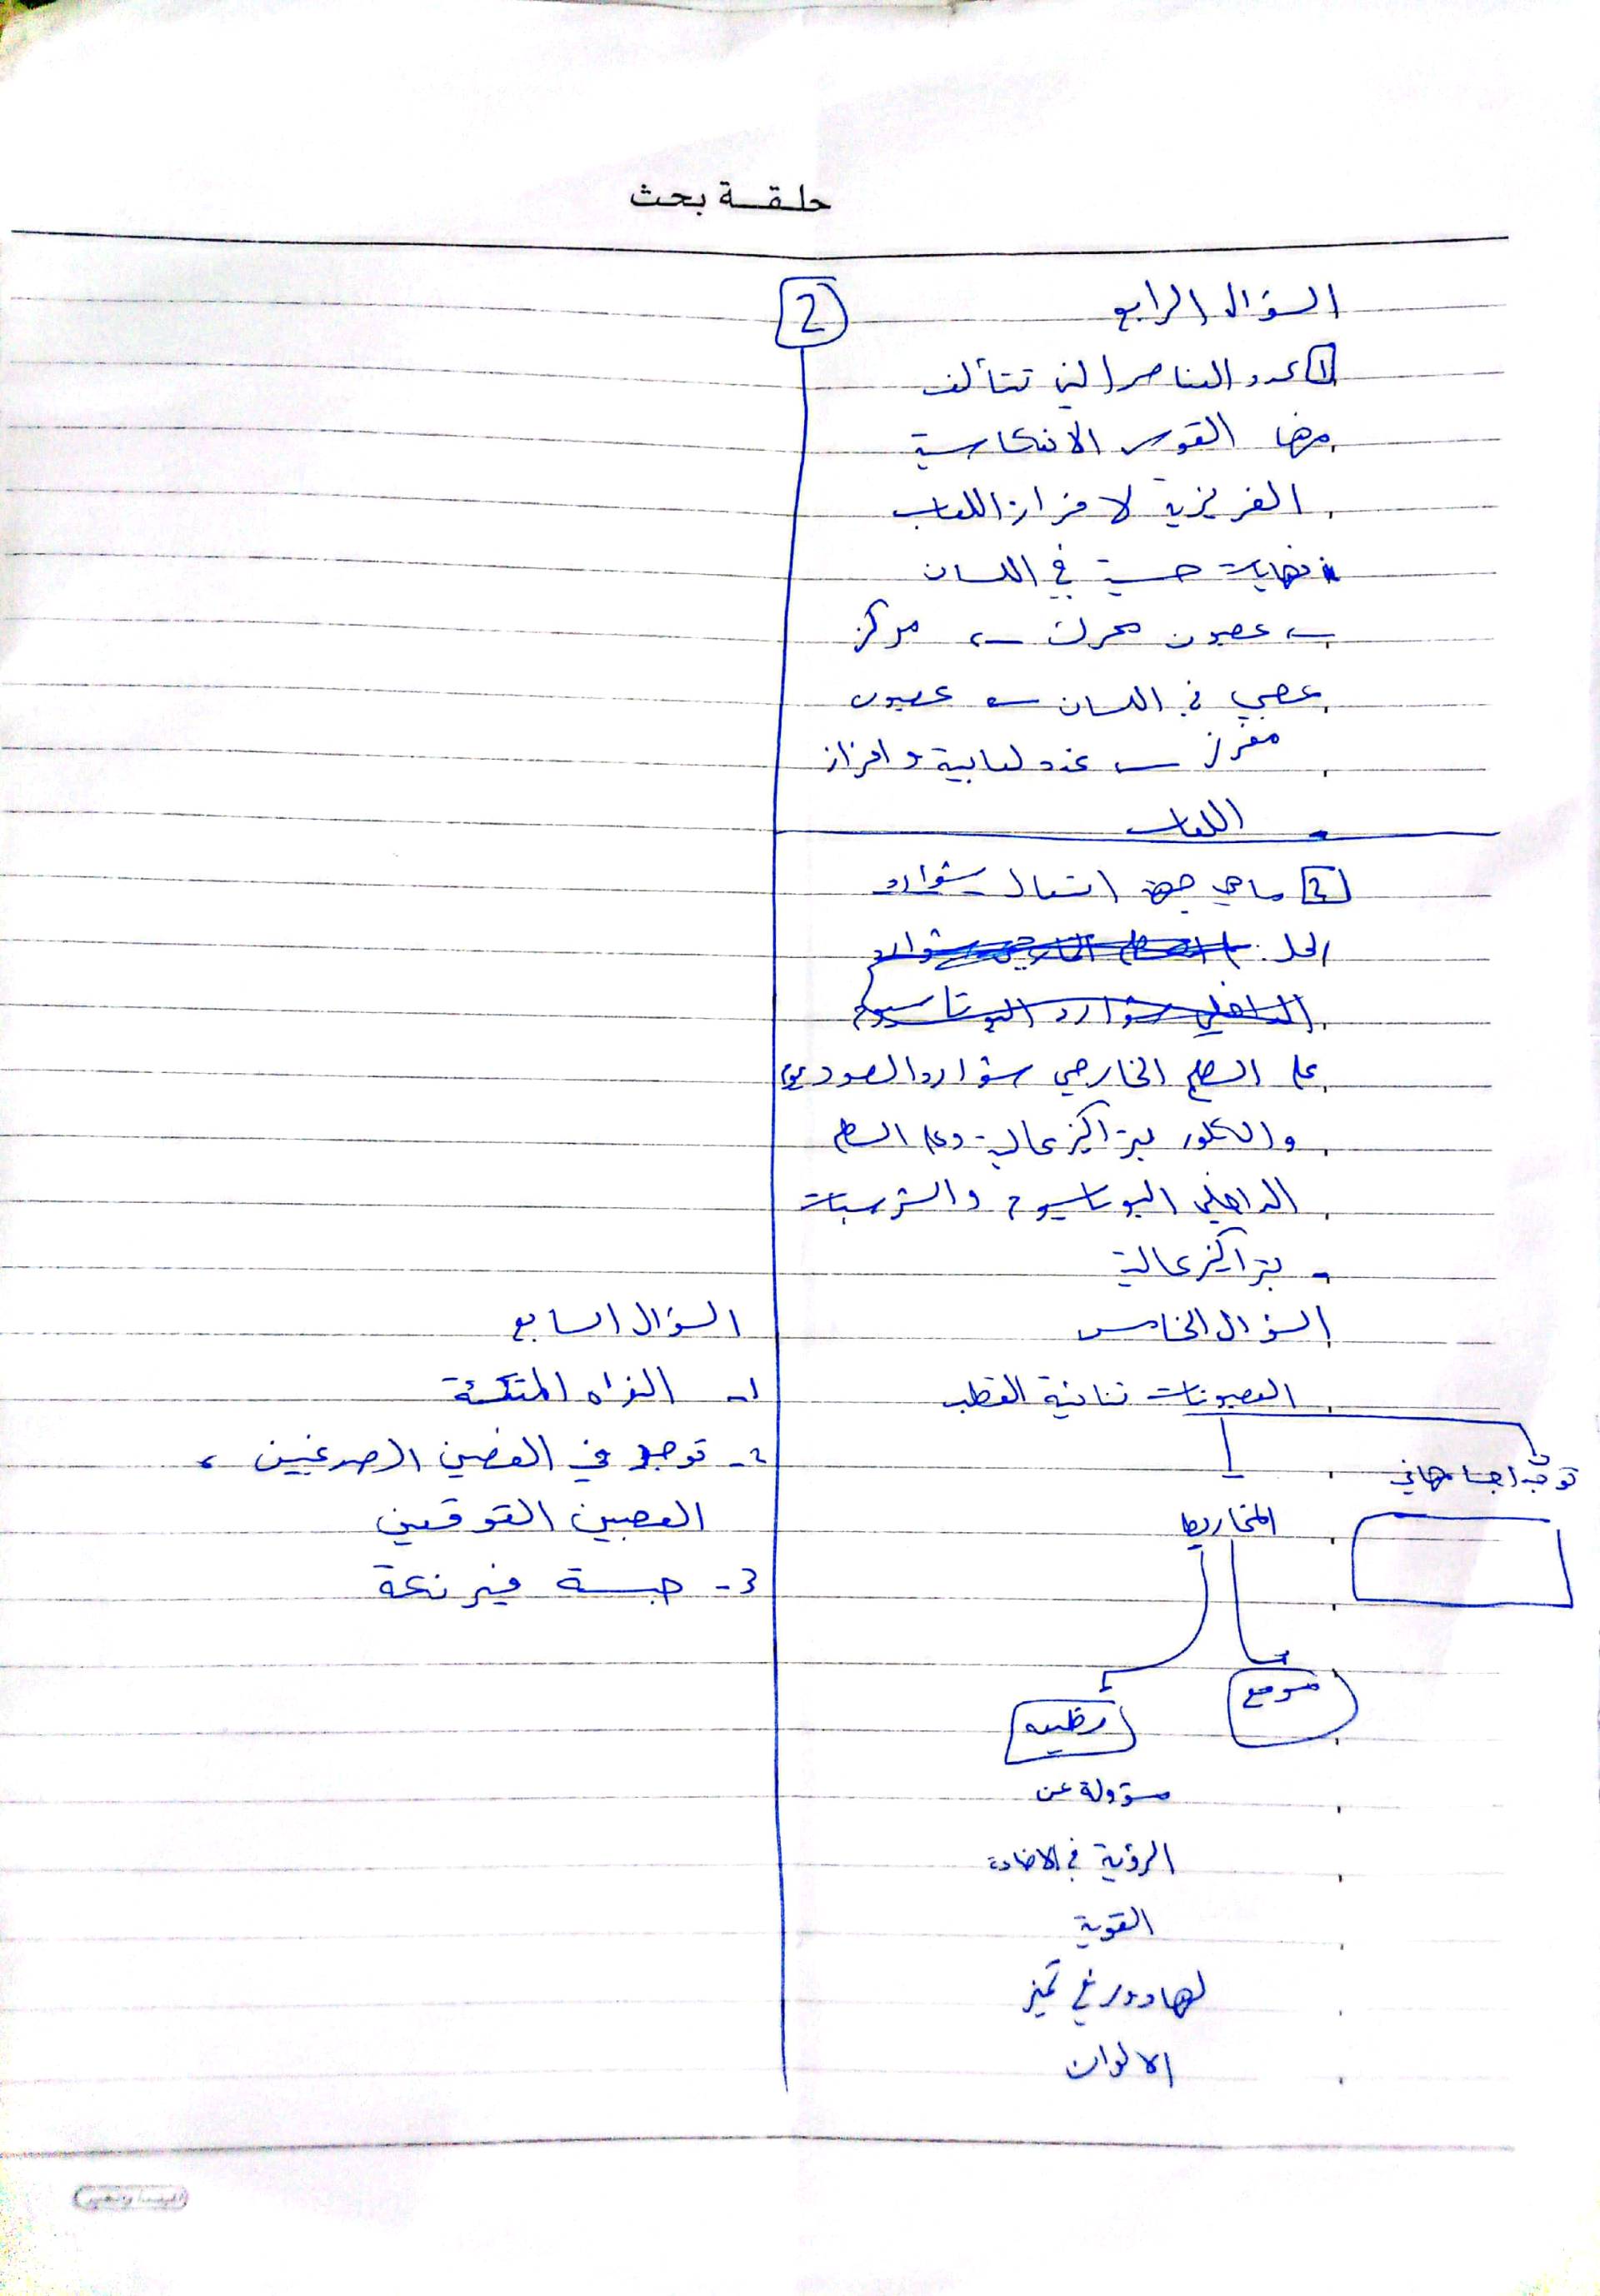 حلقة بحث
2
السؤال الرابع
1 عدد العناصر التي تتألف
منها القوس الانعكاسية
الغريزية لافراز اللعاب
نهايات حسية في اللسان
← عصبون محرك ← مركز
عصبي في اللسان ← عصبون
مفرز ← غدد لعابية وافراز
اللعاب
2 ماهي جهة انتقال شوارد
الحل:
على السطح الخارجي شوارد الصوديوم
والكلور بتراكيز عالية وعلى السطح
الداخلي البوتاسيوم والشرسبات
بتراكيز عالية
السؤال الخامس
العصبونات ثنائية القطب
المخاريط
موقع
وظيفه
مسؤولة عن
الرؤية في الاضاءة
القوية
لها دور في تميز
الالوان
السؤال السابع
1- النواه المتكئة
2- توجد في الفصين الصدغيين،
العصبين القوقعين
3- حبسة فيرنكة